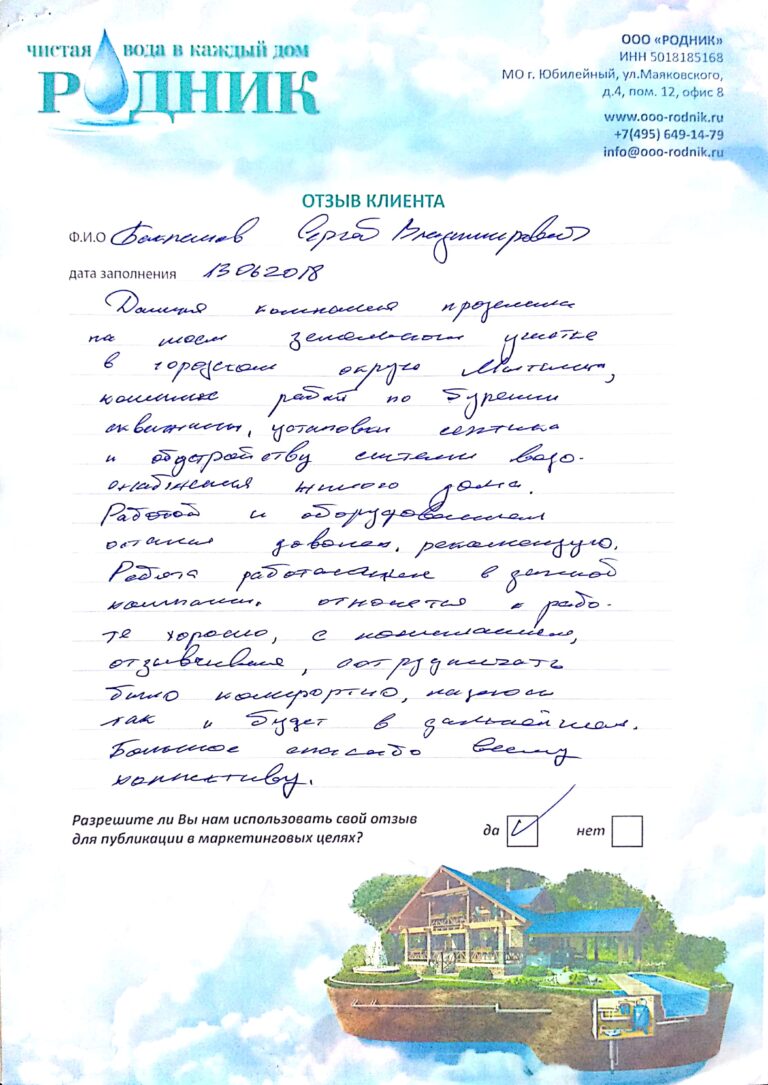 чистая вода в каждый дом
РОДНИК
ООО «РОДНИК»
ИНН 5018185168
МО г. Юбилейный, ул.Маяковского,
д.4, пом. 12, офис 8
www.ooo-rodnik.ru
+7(495) 649-14-79
info@ooo-rodnik.ru
ОТЗЫВ КЛИЕНТА
Ф.И.О Сергей Владимирович
дата заполнения 13 06 2018
Данная компания проделала
на моем земельном участке
в городском округе Мытищи,
комплекс работ по бурению
скважины, установки септика
и обустройству системы водо-
снабжения жилого дома.
Работой и оборудованием
остался доволен, рекомендую.
Ребята работающие в данной
компании. относятся к рабо-
те хорошо, с пониманием,
отзывчивые, сотрудничать
было комфортно, надеюсь
так и будет в дальнейшем.
Большое спасибо всему
коллективу.
Разрешите ли Вы нам использовать свой отзыв
для публикации в маркетинговых целях?
да нет